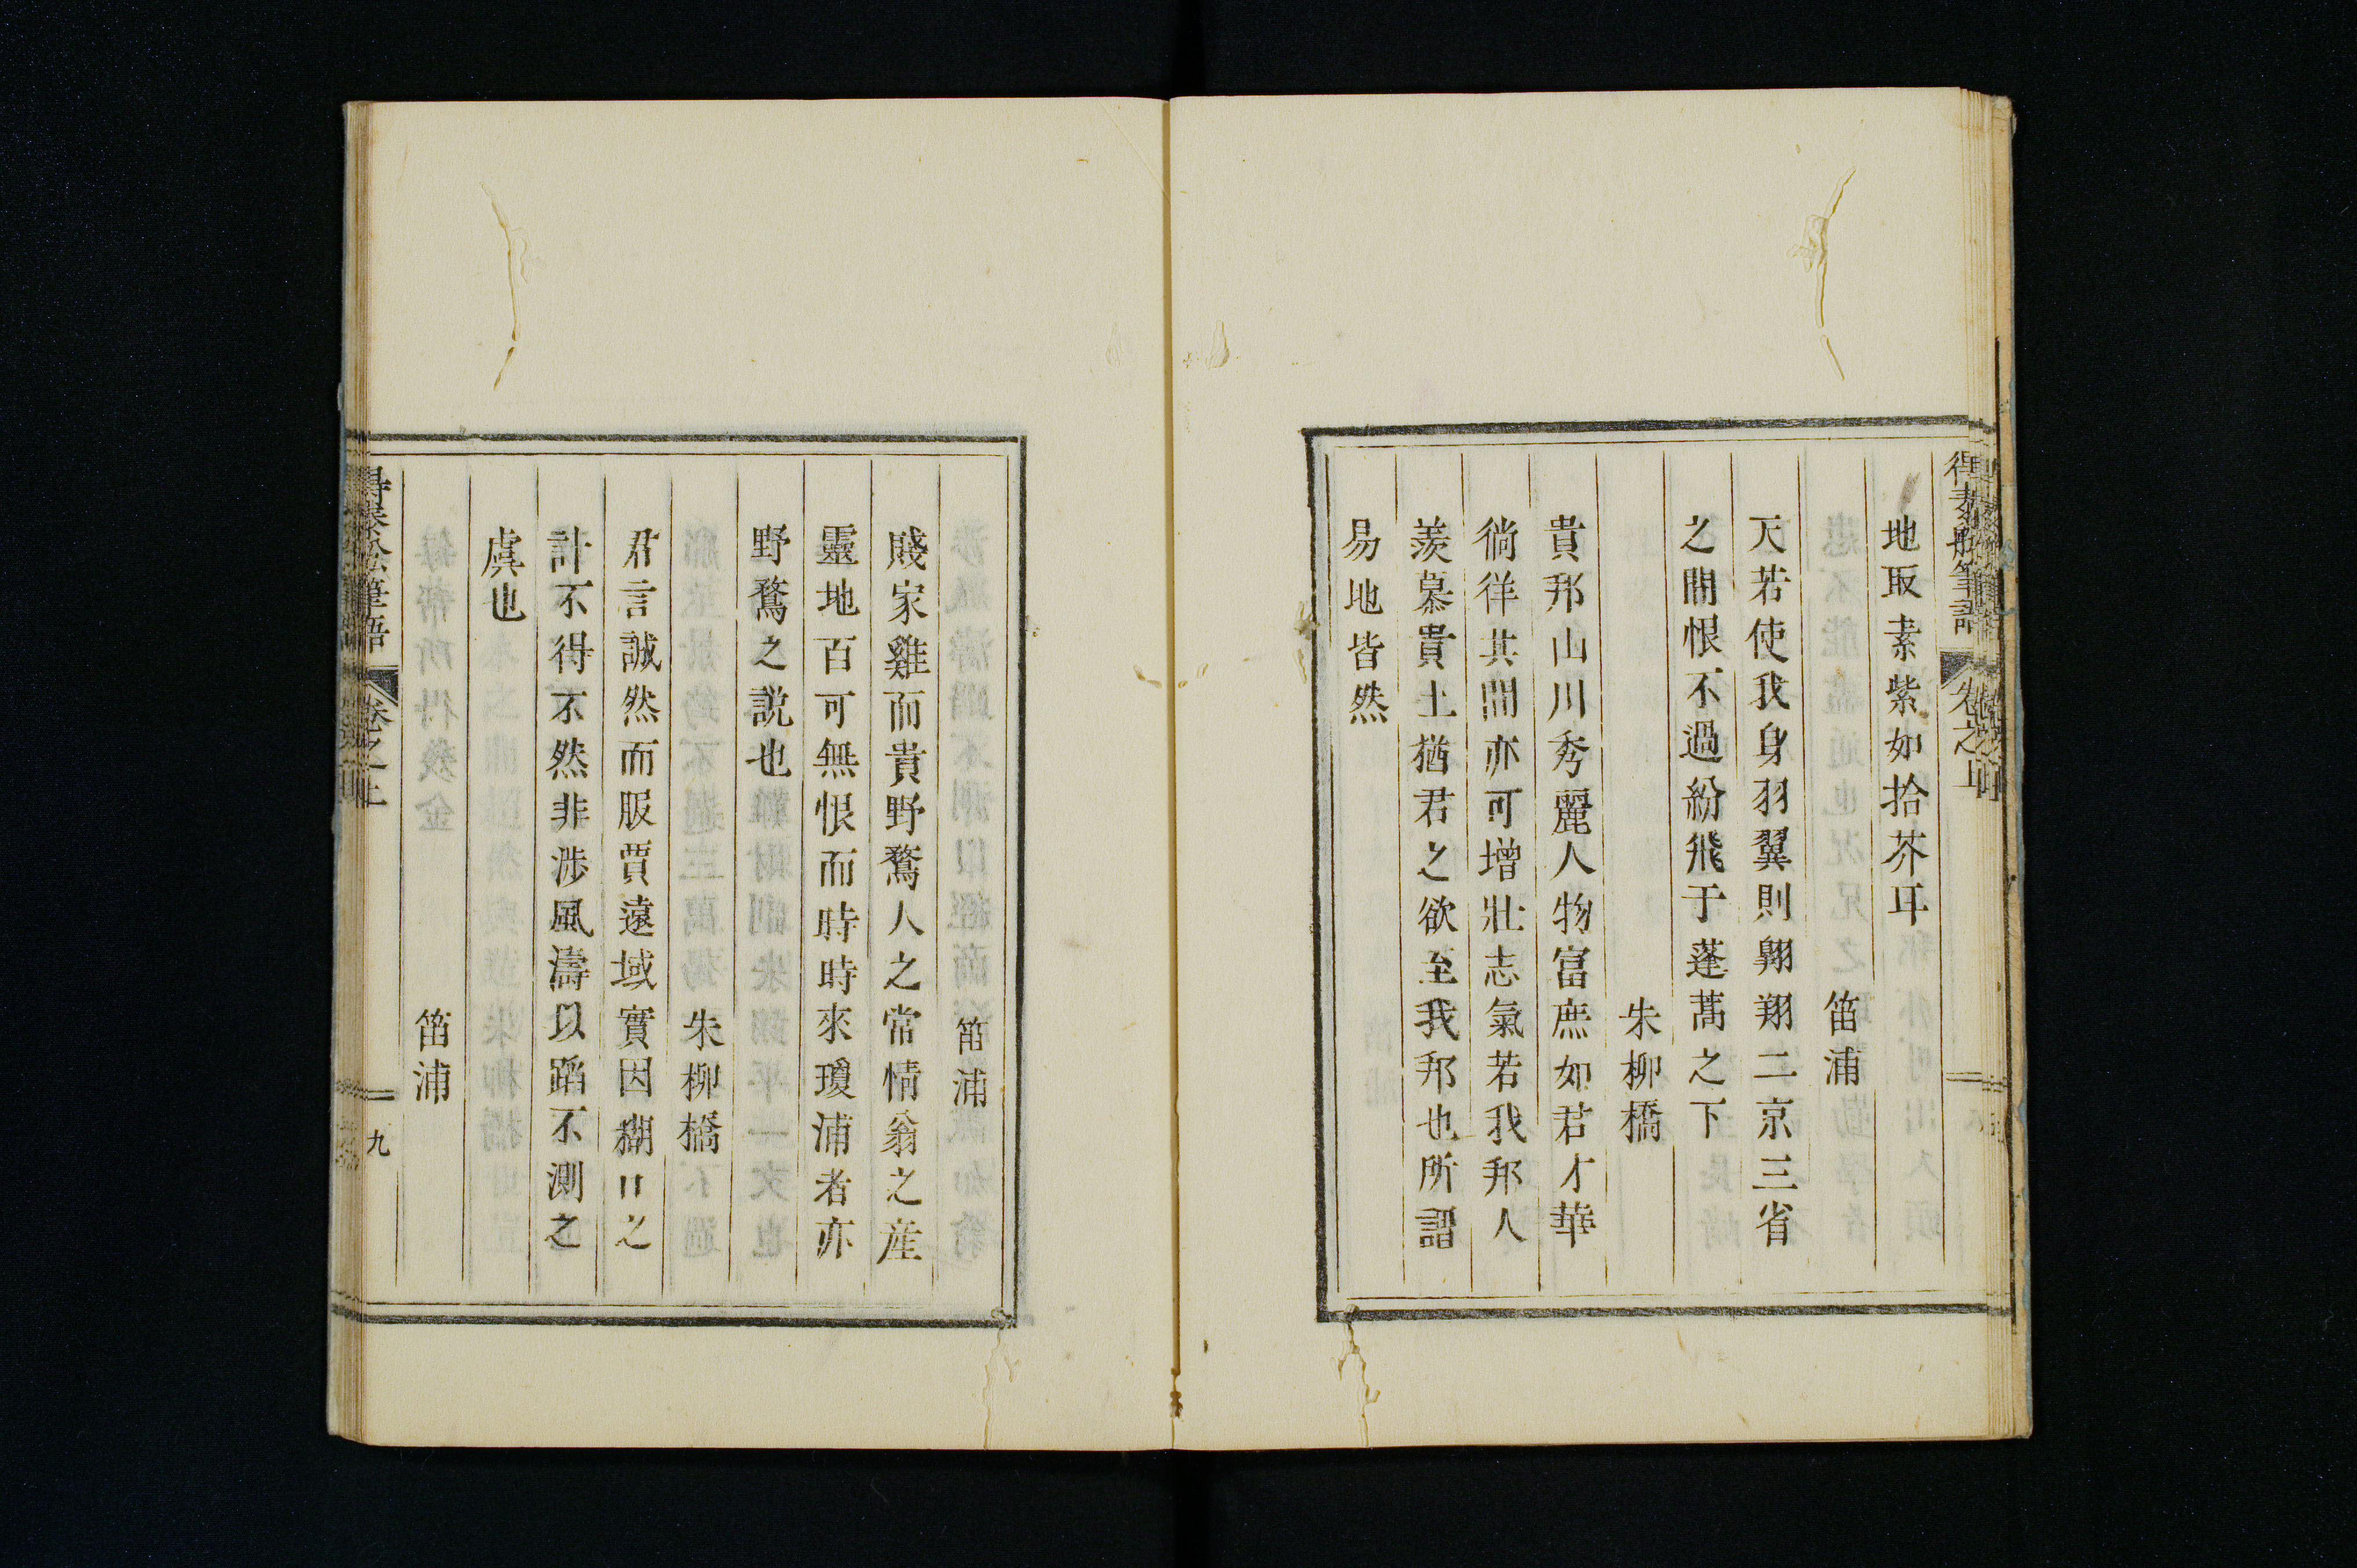 得泰船筆語
卷之上
地取素紫如拾芥耳
笛浦
天若使我身羽翼則翺翔二京三省
之間恨不過紛飛于蓬蒿之下
朱柳橋
貴邦山川秀麗人物富庶如君才華
徜徉其間亦可增壯志氣若我邦人
羨慕貴土猶君之欲至我邦也所謂
易地皆然
笛浦
賤家雞而貴野鶩人之常情翁之産
靈地百可無恨而時時來瓊浦者亦
野鶩之説也
朱柳橋
君言誠然而服賈遠域實因糊口之
計不得不然非涉風濤以蹈不測之
虞也
笛浦
得泰船筆語
卷之上
九